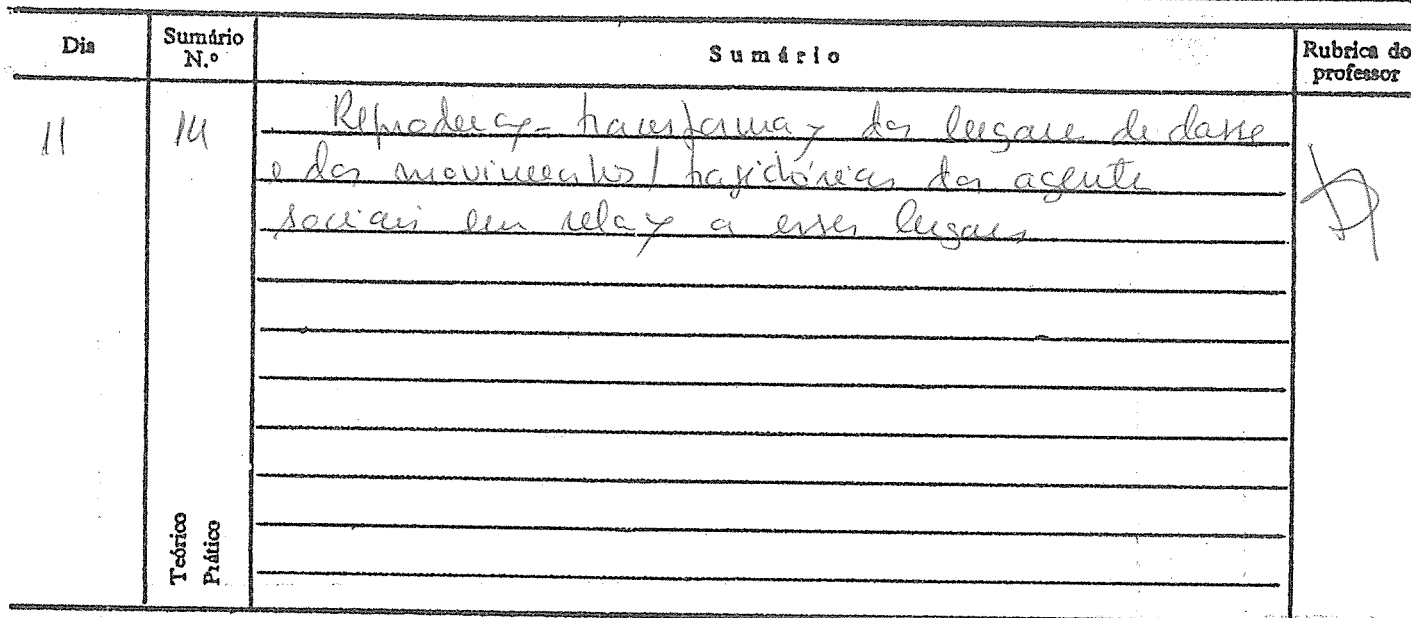 Dia Sumário N.º Sumário Rubrica do professor
11 14 Reprodução-transformação dos lugares de classe
e dos movimentos/trajectórias dos agentes
sociais em relação a esses lugares
Teórico
Prático